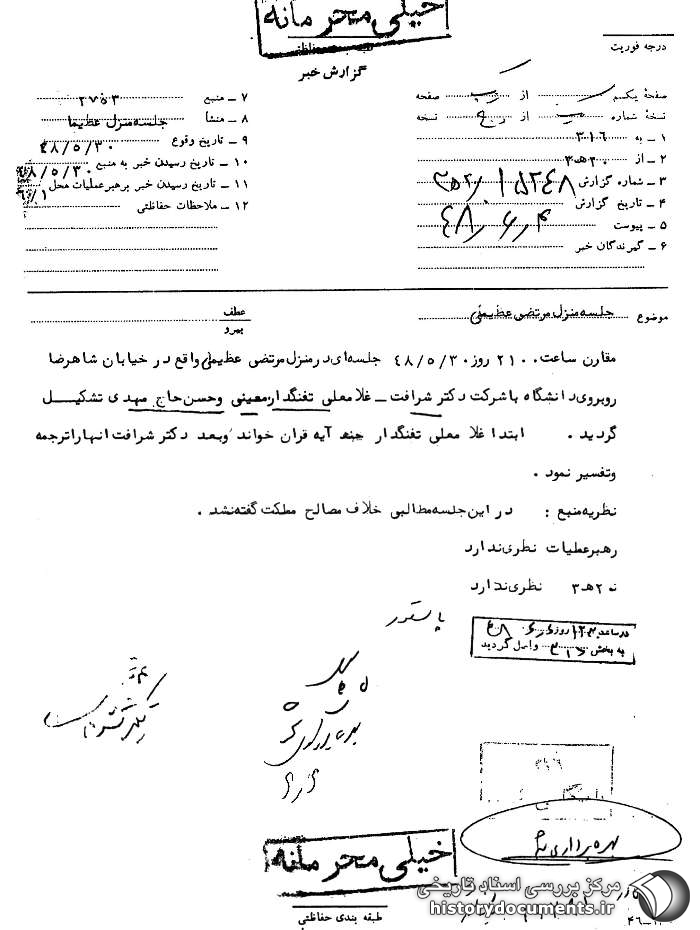 خیلی محرمانه
درجه فوریت
گزارش خبر
صفحه یکم از یک صفحه
نسخه شماره از نسخه
۱ - به ۳۱۶
۲ - از ۲۰ه۳
۳ - شماره گزارش ۱۵۲۴۸
۴ - تاریخ گزارش ۴۸٫۶٫۴
۵ - پیوست
۶ - گیرندگان خبر
۷ - منبع ۲۷۵۳
۸ - منشأ جلسه منزل عظیما
۹ - تاریخ وقوع ۴۸/۵/۳۰
۱۰ - تاریخ رسیدن خبر به منبع ۴۸/۵/۳۰
۱۱ - تاریخ رسیدن خبر برهبر عملیات محل ۶/۱
۱۲ - ملاحظات حفاظتی
موضوع جلسه منزل مرتضی عظیمی
عطف
پیرو
مقارن ساعت ۲۱۰۰ روز ۴۸/۵/۳۰ جلسه‌ای در منزل مرتضی عظیمی واقع در خیابان شاهرضا
روبروی دانشگاه با شرکت دکتر شرافت - غلامعلی تفنگدار معینی وحسن حاج مهدی تشکیل
گردید . ابتدا غلامعلی تفنگدار چند آیه قران خواند وبعد دکتر شرافت انهارا ترجمه
وتفسیر نمود .
نظریه منبع : در این جلسه مطالبی خلاف مصالح مملکت گفته نشد .
رهبر عملیات نظری ندارد
۲۰ه۳ نظری ندارد
در ساعت روز
به بخش ۳۱۶ واصل گردید
۳۱۶
بهره برداری شد
خیلی محرمانه
طبقه بندی حفاظتی
مرکز بررسی اسناد تاریخی
historydocuments.ir